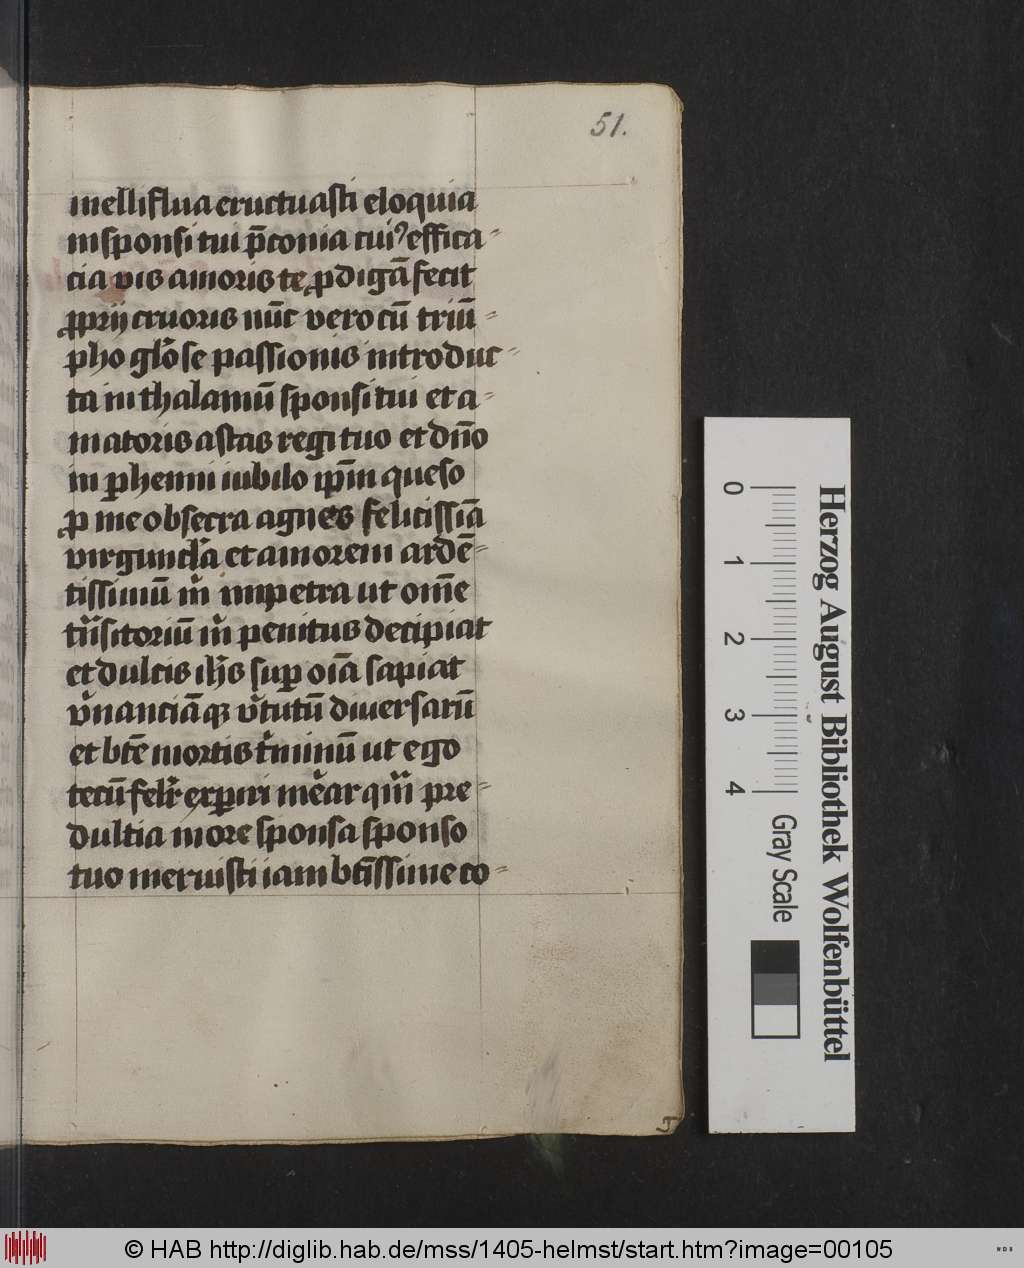 51.
melliflua eructuasti eloquia
in sponsi tui p̄conia cui⁹ effica-
cia vis amoris te ꝓdigā fecit
ꝓprij cruoris nūc vero cū triū-
pho glōse passionis introduc-
ta in thalamū sponsi tui et a-
matoris astas regi tuo et dn̄o
in ꝑhenni iubilo ip̄m queso
ꝓ me obsecra agnes felicissīa
virguncl̓a et amorem ardē-
tissimū m̓ impetra ut om̄e
trn̓sitoriū m̓ penitus decipiat
et dulcis ih̄s suꝑ oīa sapiat
v̓nanciāqꝫ v̓tutū diuersarū
et btē mortis t̓minū ut ego
tecū felr̓ exꝑiri me̓ar qm̓ pre-
dultia more sponsa sponso
tuo meruisti iam btīssime co-
Herzog August Bibliothek Wolfenbüttel
0 1 2 3 4
Gray Scale
© HAB http://diglib.hab.de/mss/1405-helmst/start.htm?image=00105